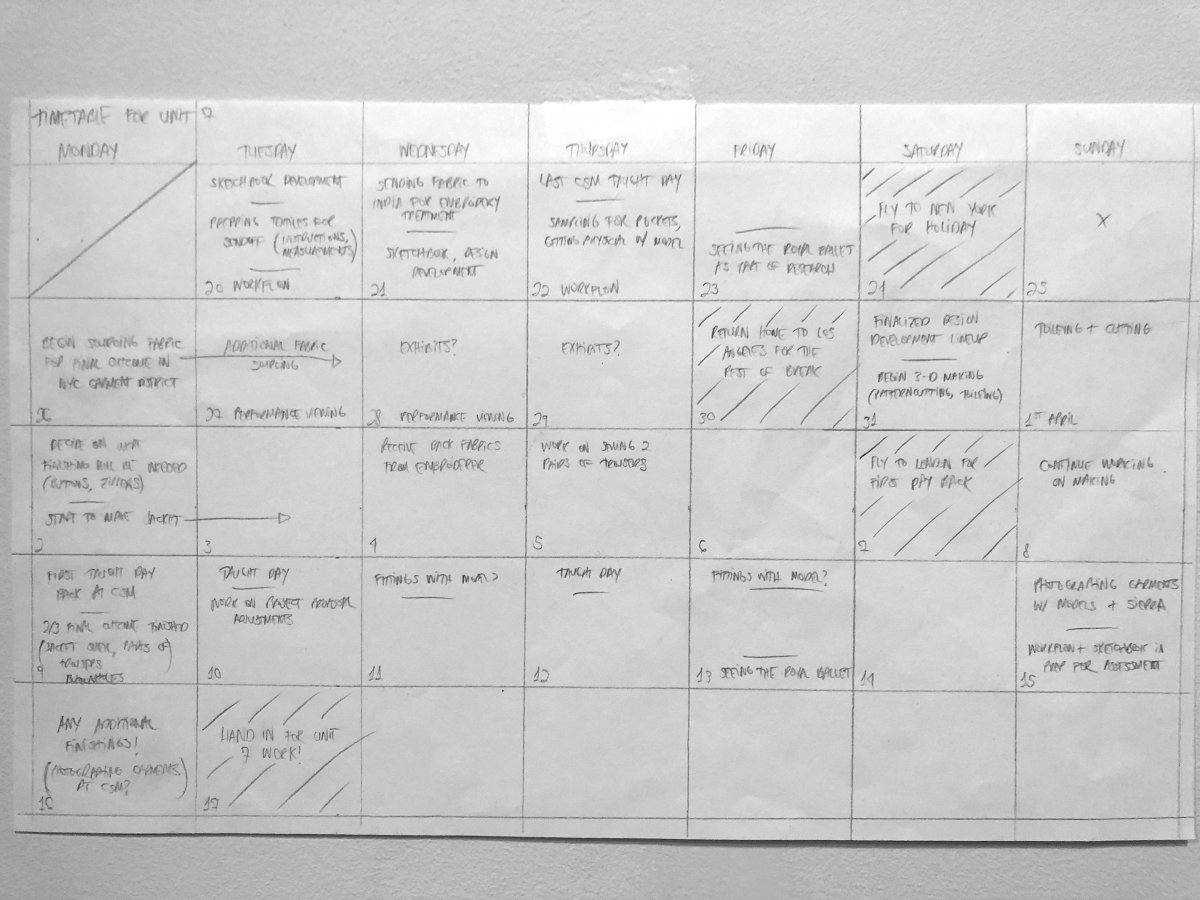 TIMETABLE FOR UNIT 7
MONDAY TUESDAY WEDNESDAY THURSDAY FRIDAY SATURDAY SUNDAY
SKETCHBOOK DEVELOPMENT
PREPPING TOILES FOR
SENDOFF (INSTRUCTIONS,
MEASUREMENTS)
20 WORKFLOW
SENDING FABRIC TO
INDIA FOR EMBROIDERY
TREATMENT
SKETCHBOOK, DESIGN
DEVELOPMENT
21
LAST CSM TAUGHT DAY
SAMPLING FOR POCKETS,
CUTTING PHYSICAL W/ MODEL
22 WORKFLOW
SEEING THE ROYAL BALLET
AS PART OF RESEARCH
23
FLY TO NEW YORK
FOR HOLIDAY
24
X
25
BEGIN SOURCING FABRIC
FOR FINAL OUTCOME IN
NYC GARMENT DISTRICT
26
ADDITIONAL FABRIC
SOURCING
27 PERFORMANCE VIEWING
EXHIBITS?
28 PERFORMANCE VIEWING
EXHIBITS?
29
RETURN HOME TO LOS
ANGELES FOR THE
REST OF BREAK
30
FINALIZED DESIGN
DEVELOPMENT LINEUP
BEGIN 3-D MAKING
(PATTERNCUTTING, TOILEING)
31
TOILEING + CUTTING
1ST APRIL
DECIDE ON WHAT
FINISHING WILL BE NEEDED
(BUTTONS, ZIPPERS)
START TO MAKE JACKET
2
3
RECEIVE BACK FABRICS
FROM EMBROIDERER
4
WORK ON SEWING 2
PAIRS OF TROUSERS
5
6
FLY TO LONDON FOR
FIRST DAY BACK
7
CONTINUE WORKING
ON MAKING
8
FIRST TAUGHT DAY
BACK AT CSM
2/3 FINAL OUTCOME FINISHED
(JACKET OUTER, PARTS OF
TROUSERS
9
TAUGHT DAY
WORK ON PROJECT PROPOSAL
ADJUSTMENTS
10
FITTINGS WITH MODEL?
11
TAUGHT DAY
12
FITTINGS WITH MODEL?
13 SEEING THE ROYAL BALLET
14
PHOTOGRAPHING GARMENTS
W/ MODELS + SIERRA
WORKFLOW + SKETCHBOOK IN
PREP FOR ASSESSMENT
15
ANY ADDITIONAL
FINISHINGS!
(PHOTOGRAPHING GARMENTS
AT CSM?)
16
HAND IN FOR UNIT
7 WORK!
17